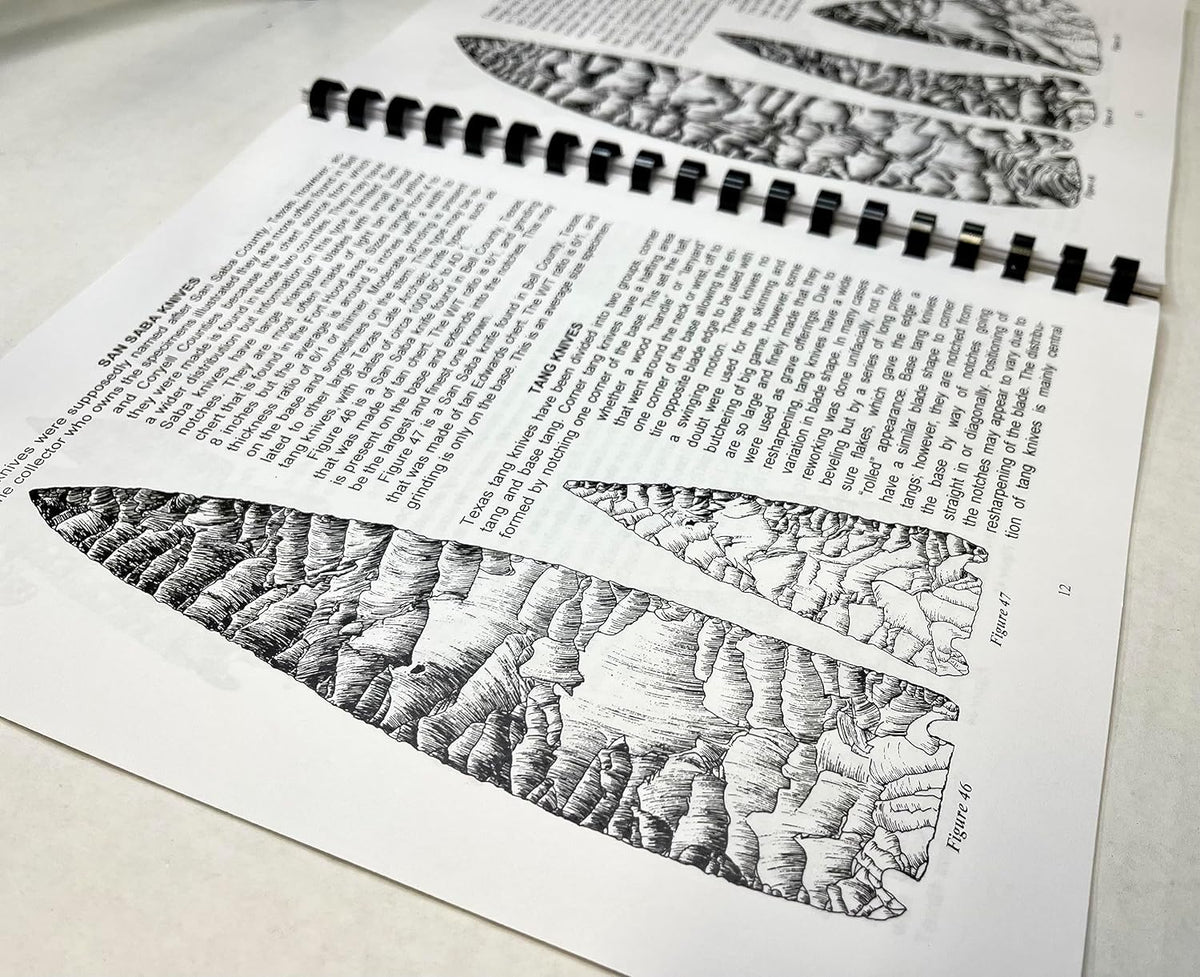 SAN SABA KNIVES
knives were supposedly named after San Saba County, Texas, however,
collector who owns the specimens illustrated they are more often found in Bell
and Coryell Counties because the chert source from which
they were made is found in those two counties. They may have
a wider distribution but information on this type is limited. San
Saba knives have large triangular blades with small base
notches. They are most often made of light tan and yellow
chert that is found in the Fort Hood area. Sizes range from 4 to
8 inches but the average is around 5 inches with a width to
thickness ratio of 6/1 or thinner. Moderate grinding is present
on the base and sometimes on the stem. This type may be re-
lated to other large Texas Late Archaic knife types, such as
tang knives, with dates of circa 1000 BC to AD 1.
Figure 46 is a San Saba knife found in Bell County, Texas
that was made of tan chert. The W/T ratio is 6/1 and grinding
is present on the base and extends into the notches. This may
be the largest and finest one known.
Figure 47 is a San Saba knife found in Bell County, Texas
that was made of tan Edwards chert. The W/T ratio is 6/1 and
grinding is only on the base. This is an average size specimen
TANG KNIVES
Texas tang knives have been divided into two groups, corner
tang and base tang. Corner tang knives have a hafting area
formed by notching one corner of the base. This set the haft,
whether a wood "handle" or lanyard
that went around the neck or wrist, off to
one corner of the base allowing the en-
tire opposite blade edge to be used with
a swinging motion. These knives no
doubt were used for the skinning and
butchering of big game. However, some
are so large and finely made that they
were used as grave offerings. Due to
resharpening, tang knives have a wide
variation in blade shape. In many cases
reworking was done unifacially, not by
beveling but by a series of long pres-
sure flakes, which gave the edge a
"rolled" appearance. Base tang knives
have a similar blade shape to corner
tangs; however, they are notched from
the base by way of notches going
straight in or diagonally. Positioning of
the notches may appear to vary due to
resharpening of the blade. The distribu-
tion of tang knives is mainly central
Figure 47
Figure 46
12